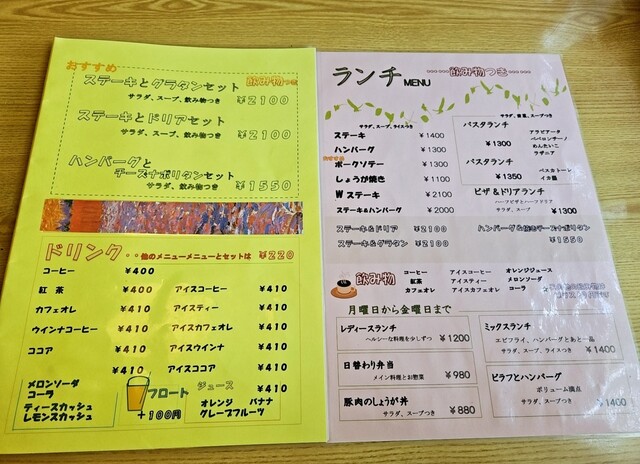 おすすめ
ステーキとグラタンセット 飲み物つき
サラダ、スープ、飲み物つき ¥2100
ステーキとドリアセット
サラダ、スープ、飲み物つき ¥2100
ハンバーグと
チーズナポリタンセット
サラダ、飲み物つき ¥1550
ドリンク・・他のメニューメニューとセットは ¥220
コーヒー ¥400
紅 茶 ¥400 アイスコーヒー ¥410
カフェオレ ¥410 アイスティー ¥410
ウインナコーヒー ¥410 アイスカフェオレ ¥410
ココア ¥410 アイスウインナ ¥410
¥410 アイスココア ¥410
メロンソーダ
コーラ
ティースカッシュ
レモンスカッシュ
フロート
+100円
ジュース ¥410
オレンジ バナナ
グレープフルーツ
ランチ MENU ・・・・・・飲み物つき・・・・・・
サラダ、スープ、ライスつき
ステーキ ¥1400
ハンバーグ ¥1300
おすすめ
ポークソテー ¥1300
しょうが焼き ¥1100
W ステーキ ¥2100
ステーキ&ハンバーグ ¥2000
ステーキ&ドリア ¥2100
ステーキ&グラタン ¥2100
パスタランチ
¥1300
アラビアータ
ペペロンチーノ
めんたいこ
ラザニア
パスタランチ
¥1350
ペスカトーレ
イカ墨
ピザ&ドリアランチ
ハーフピザとハーフドリア
サラダ、スープ ¥1300
¥1550
飲み物
コーヒー アイスコーヒー オレンジジュース
紅茶 アイスティー メロンソーダ
カフェオレ アイスカフェオレ コーラ
月曜日から金曜日まで
レディースランチ
ヘルシーな料理を少しずつ ¥1200
日替わり弁当
メイン料理とお惣菜 ¥980
豚肉のしょうが丼
サラダ、スープつき ¥880
ミックスランチ
エビフライ、ハンバーグとあと一品
サラダ、スープ、ライスつき ¥1400
ピラフとハンバーグ
ボリューム満点
サラダ、スープつき ¥1400